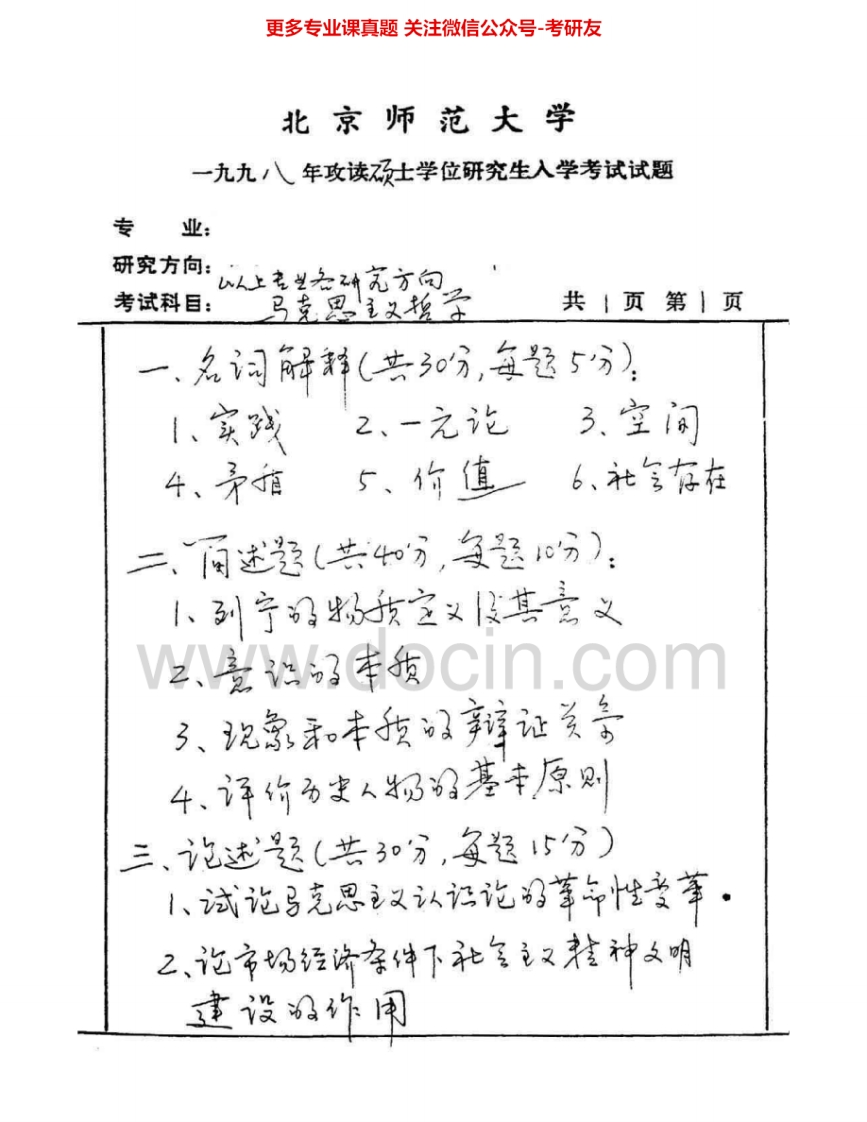 更多专业课真题 关注微信公众号-考研友
北京师范大学
一九九八年攻读硕士学位研究生入学考试试题
专 业：
研究方向：以上专业各研究方向
考试科目：马克思主义哲学 共1页 第1页
一、名词解释(共30分,每题5分)：
1、实践 2、一元论 3、空间
4、矛盾 5、价值 6、社会存在
二、简述题(共40分,每题10分)：
1、列宁的物质定义及其意义
2、意识的本质
www.docin.com
3、现象和本质的辩证关系
4、评价历史人物的基本原则
三、论述题(共30分,每题15分)
1、试论马克思主义认识论的革命性变革.
2、论市场经济条件下社会主义精神文明
建设的作用